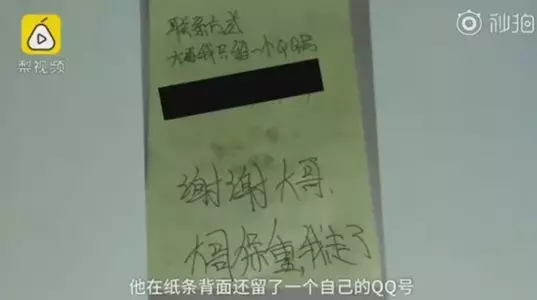 梨视频
秒拍
联系方式
大哥我只留一个QQ号
谢谢大哥.
大哥保重,我走了
他在纸条背面还留了一个自己的QQ号